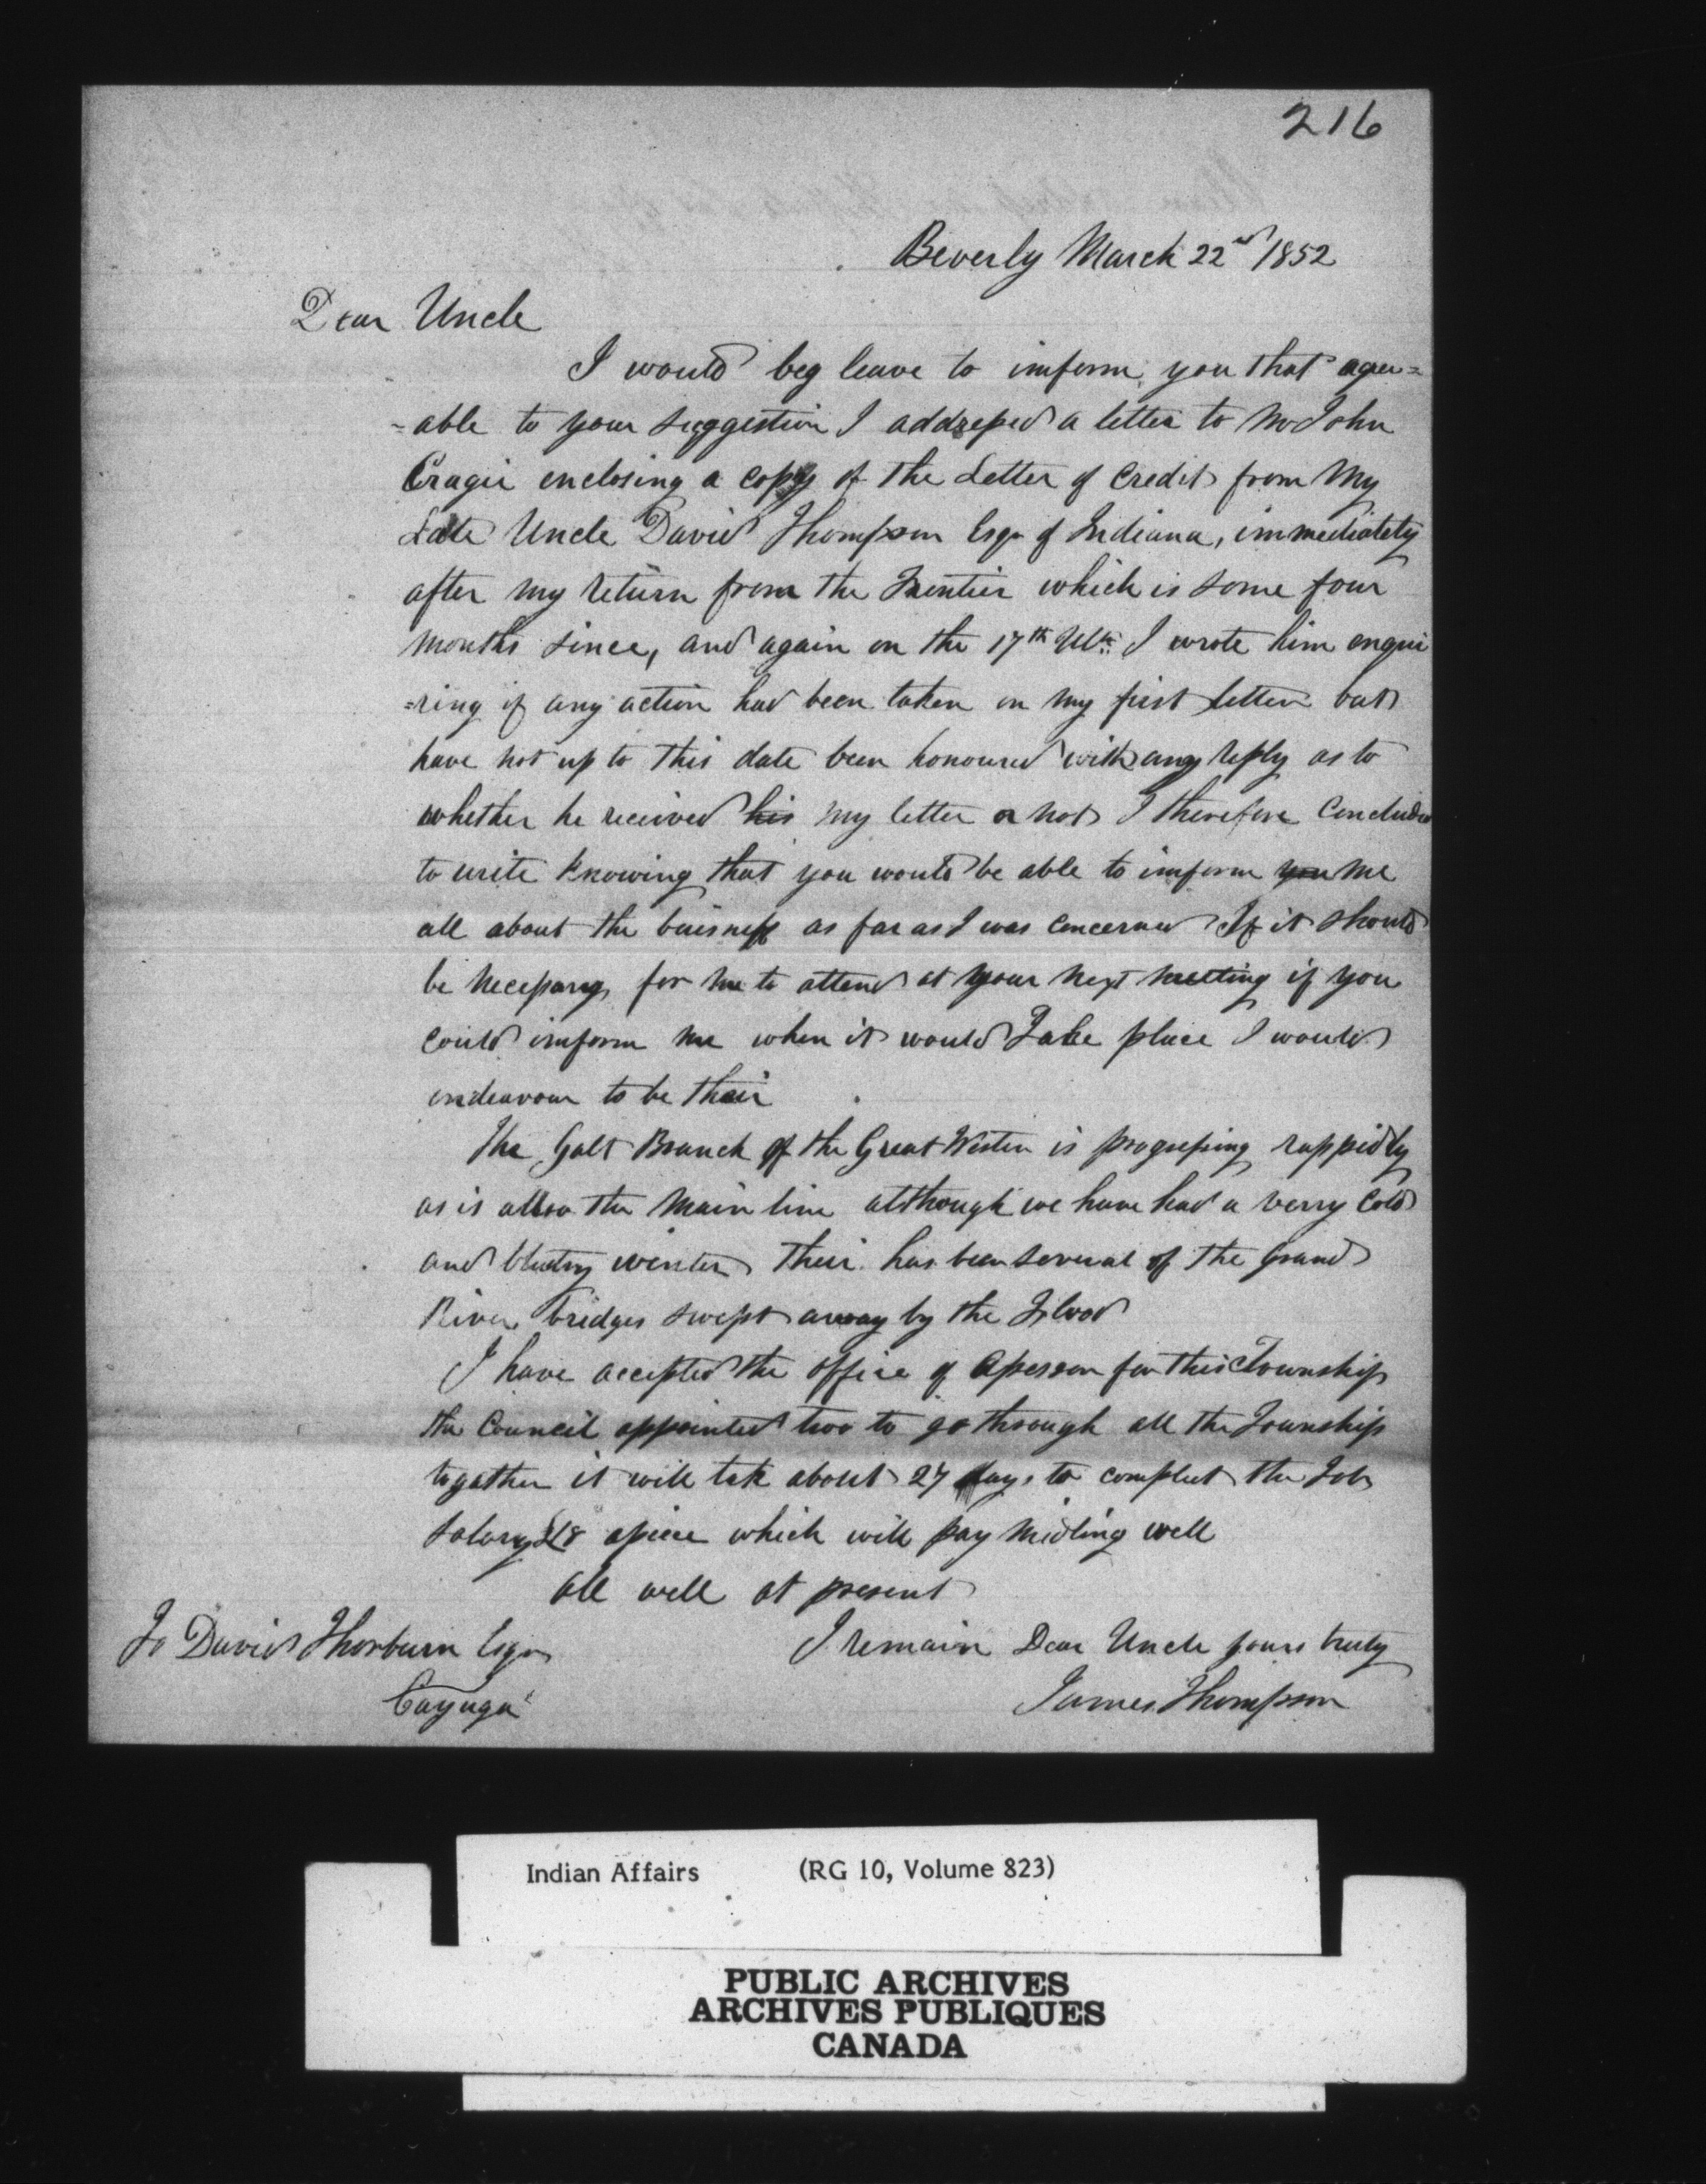 216
Beverly March 22nd 1852
Dear Uncle
I would beg leave to imform you that agree=
=able to your suggestion I addressed a letter to Mr John
Cragie enclosing a copy of the Letter of Credit from My
Late Uncle David Thompson Esqr of Indiana, immediately
after my return from the Frontier which is some four
months since, and again on the 17th Ult: I wrote him enqui
=ring if any action had been taken on my first letter but
have not up to this date been honoured with any reply as to
whether he received his my letter or not I therefore Concluded
to write knowing that you would be able to imform you me
all about the buisness as far as I was concerned If it should
be necessary for me to attend at your next meeting if you
could imform me when it would Take place I would
endeavour to be thair
The Galt Branch of the Great Western is progressing rappidly
as is allso the Main line although we have had a verry Cold
and winter their has been several of the Grand
River bridges swept away by the Flood
I have accepted the office of Asessor for this Township
the Council appointed two to go through all the Township
togather it will take about 27 days to compleet the Job
Salary £18 apiece which will pay midling well
all well at present
I remain Dear Uncle yours truly
James Thompson
To David Thorburn Esqr
Cayuga
Indian Affairs (RG 10, Volume 823)
PUBLIC ARCHIVES
ARCHIVES PUBLIQUES
CANADA